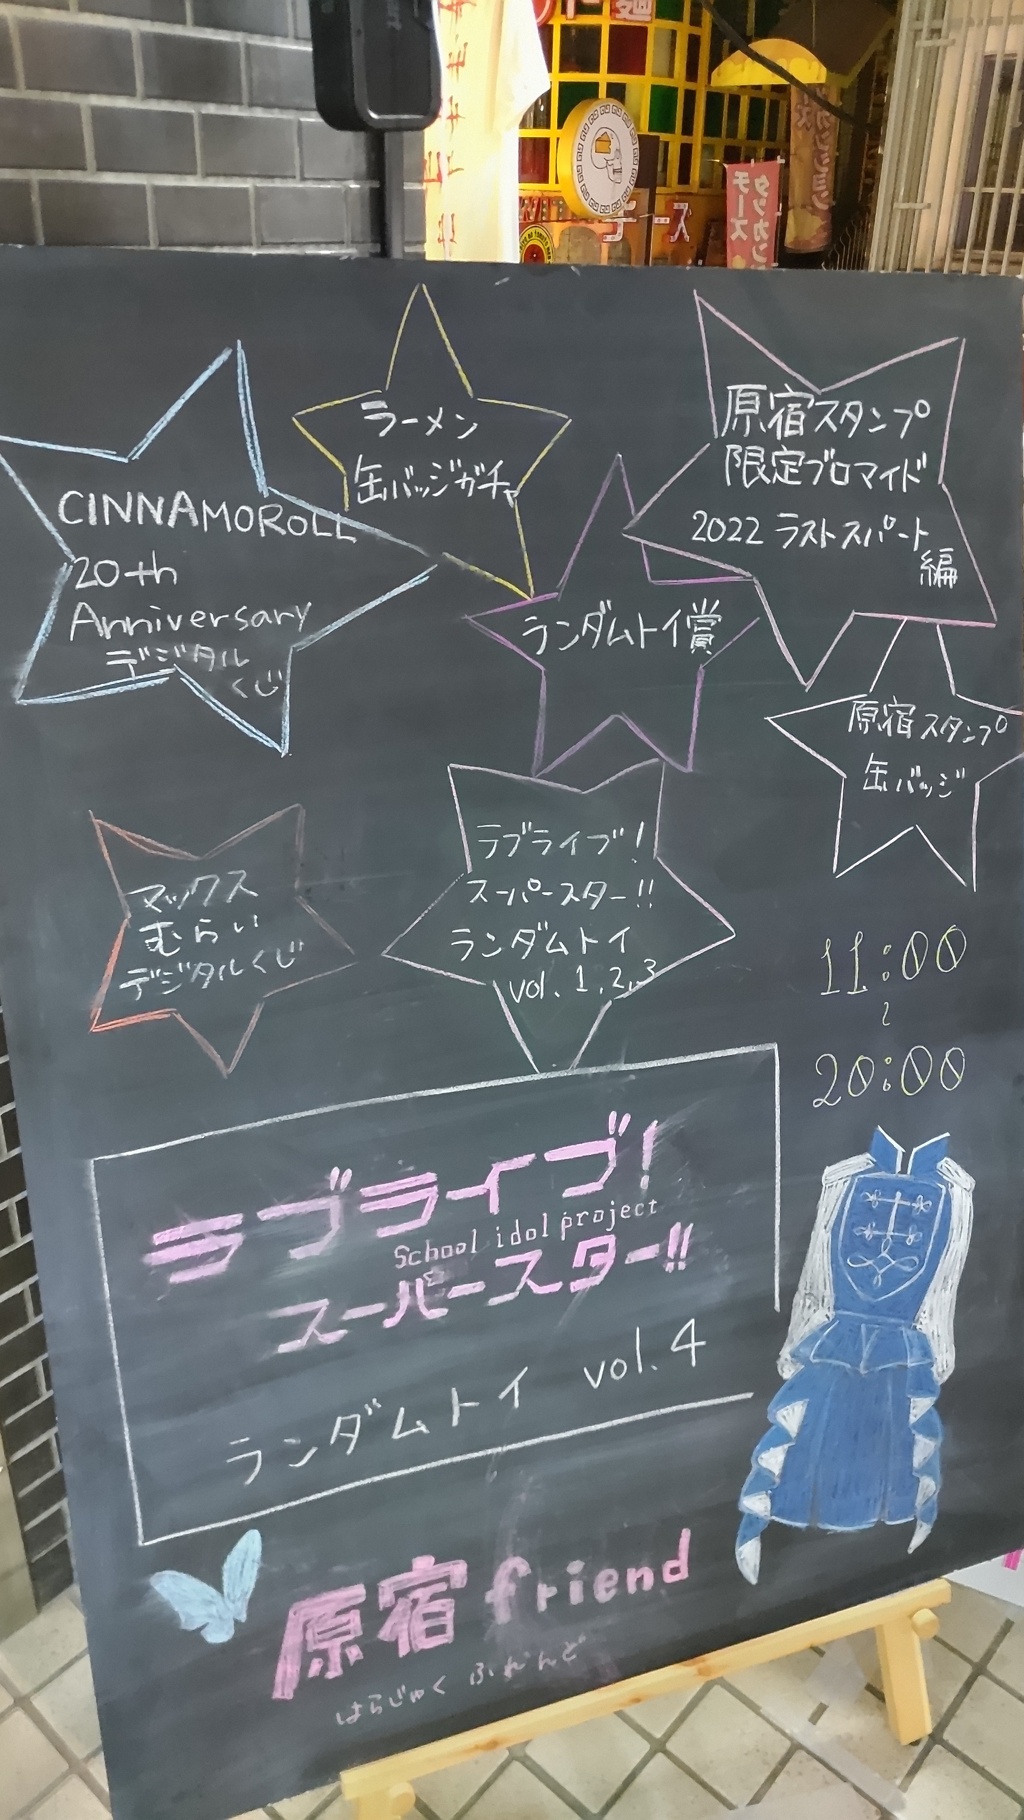 タッカン
チーズ
CINNAMOROLL
20th
Anniversary
デジタル
くじ
ラーメン
缶バッジガチャ
原宿スタンプ
限定ブロマイド
2022 ラストスパート
編
ランダムトイ賞
原宿スタンプ
缶バッジ
マックス
むらい
デジタルくじ
ラブライブ!
スーパースター!!
ランダムトイ
vol. 1.2.3
11:00
~
20:00
ラブライブ!
School idol project
スーパースター!!
ランダムトイ vol.4
原宿 friend
はらじゅく ふれんど